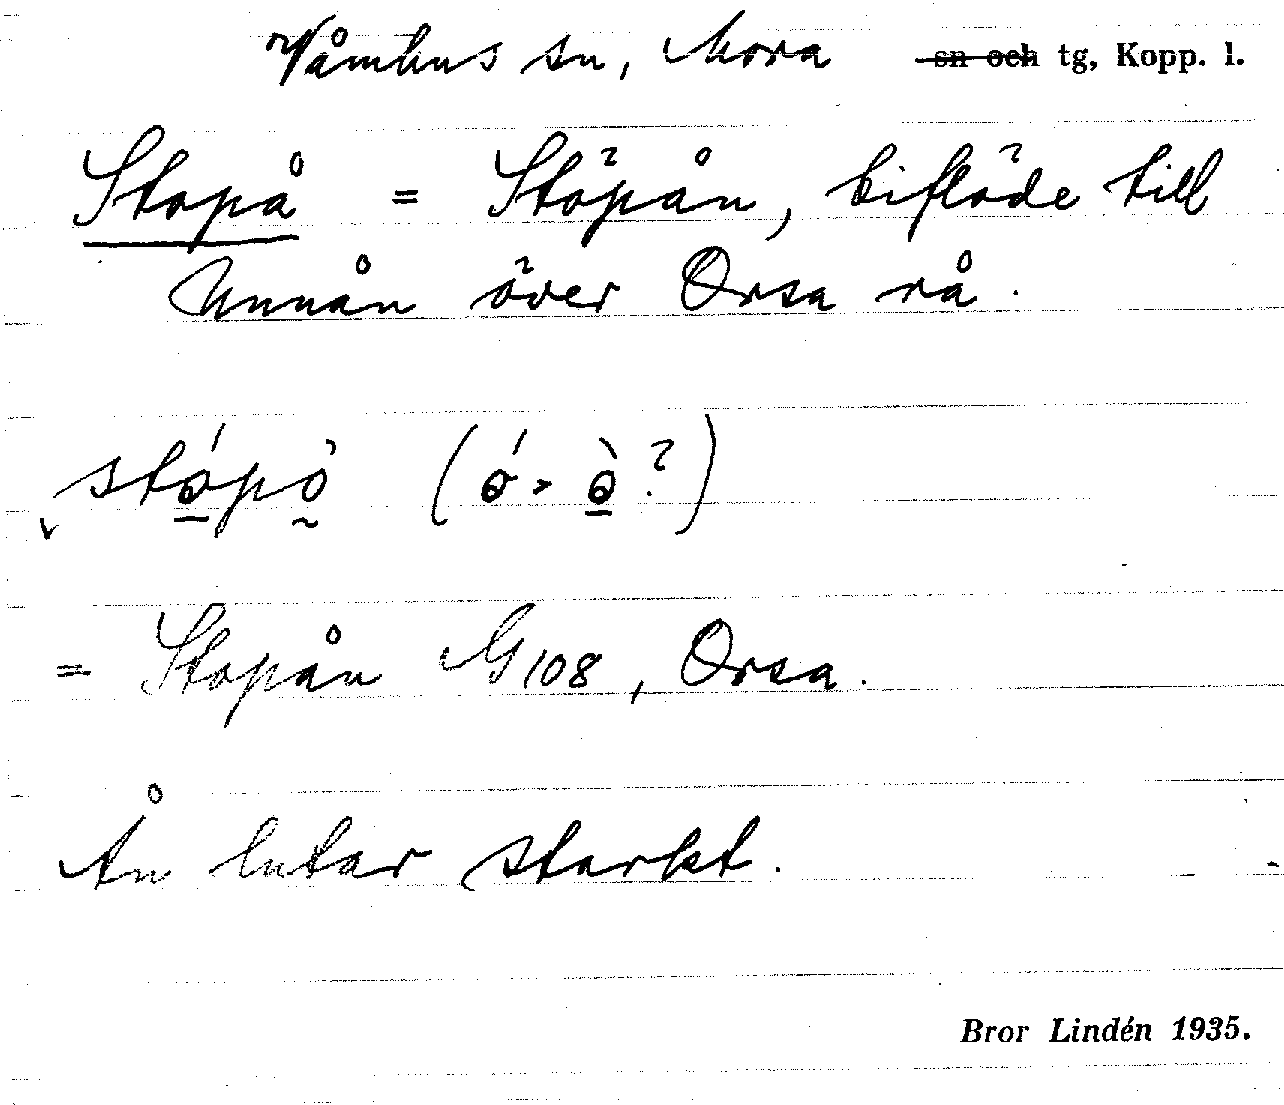 Våmhus sn, Mora sn och tg, Kopp. l.
Stopå = Stöpån, biflöde till
Unnån över Orsa rå.
stópò (ó > ò?)
= Stopån G108, Orsa.
Ån lutar starkt.
Bror Lindén 1935.